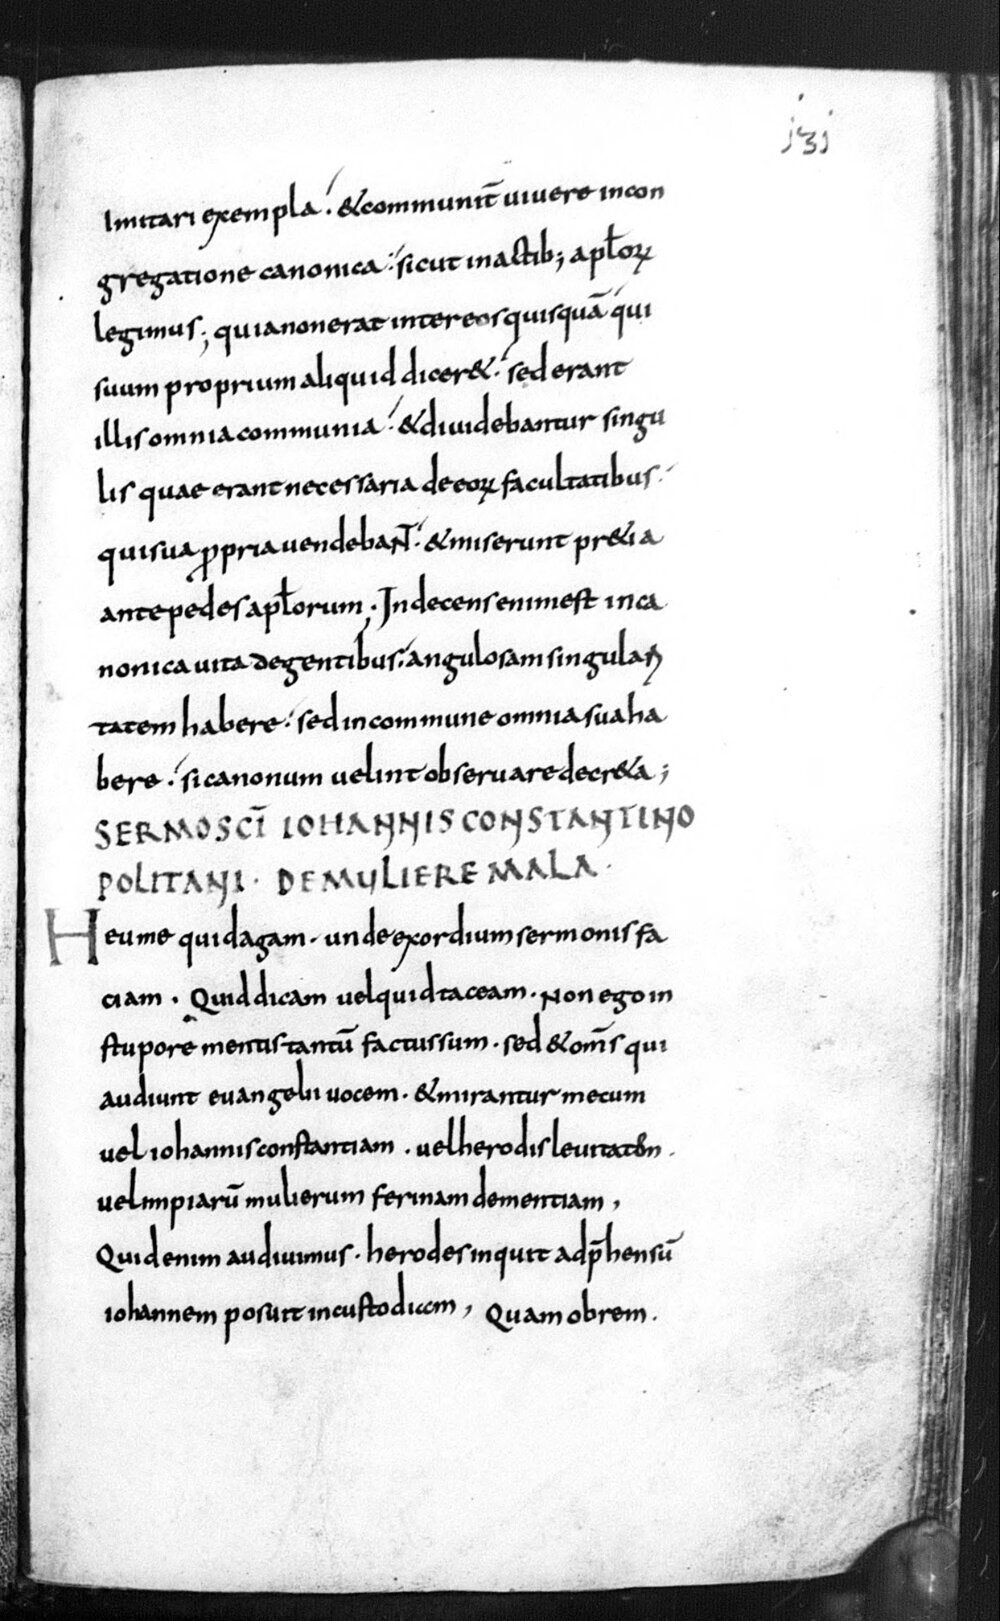 131
Imitari exempla. &communit̄ uiuere incon
gregatione canonica. sicut inactib; apl̄oꝝ
legimus; quianonerat intereosquisquā qui
suum proprium aliquid dicer&. sed erant
illis omnia communia. &diuidebantur singu
lis quae erant necessaria de eoꝝ facultatibus.
qui sua ꝓpria uendebaNT̄. &miserunt pr&ia
ante pedes apl̄orum; Indecens enim est inca
nonica uita degentibus. angulosam singulari
tatem habere. sed incommune omnia sua ha
bere. si canonum uelint obseruare decr&a;
SERMO SC̄I IOHANNIS CONSTANTINO
POLITANI. DE MULIERE MALA.
Heume quid agam. unde exordium sermonis fa
ciam. Quid dicam uel quid taceam. Non ego in
stupore mentis tantū factus sum. sed &om̄s qui
audiunt euangelii uocem. &mirantur mecum
uel iohannis constantiam. uel herodis leuitatem.
uel impiarū mulierum ferinam dementiam,
Quid enim audiuimus. herodes inquit adp̄hensū
iohannem posuit in custodiam, Quam obrem.